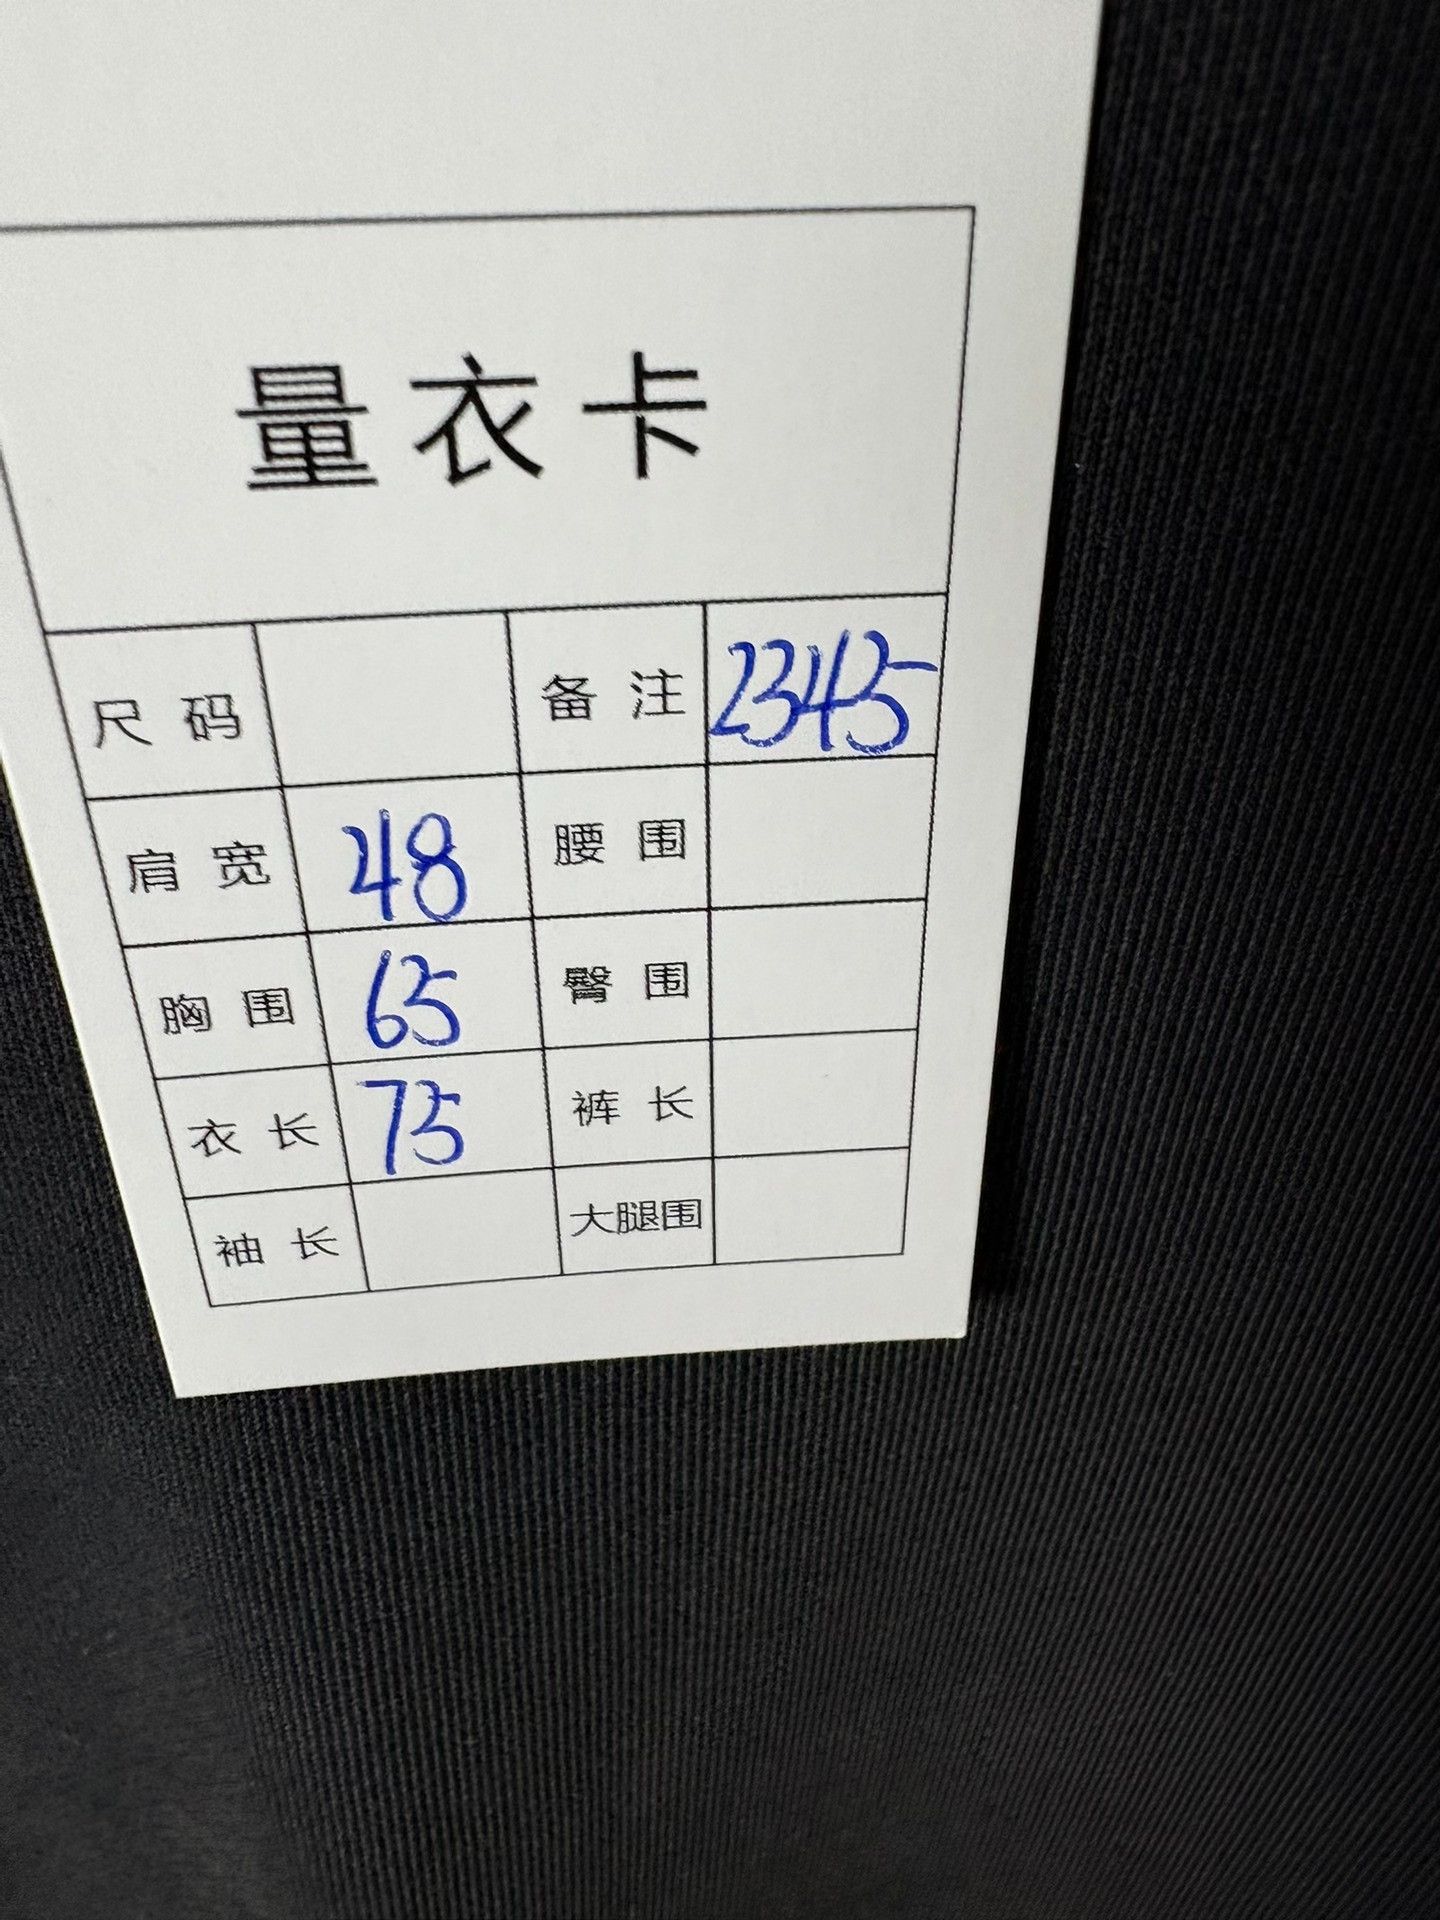 量衣卡
尺码 备注 23435
肩宽 48 腰围
胸围 65 臀围
衣长 75 裤长
袖长 大腿围